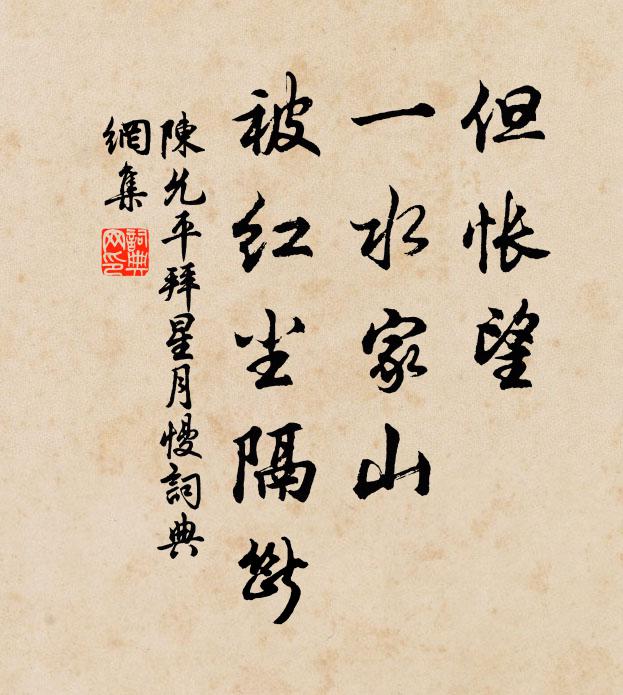 但怅望
一水家山
被红尘隔断
陳允平拜星月慢詞典
網集
詞典网印